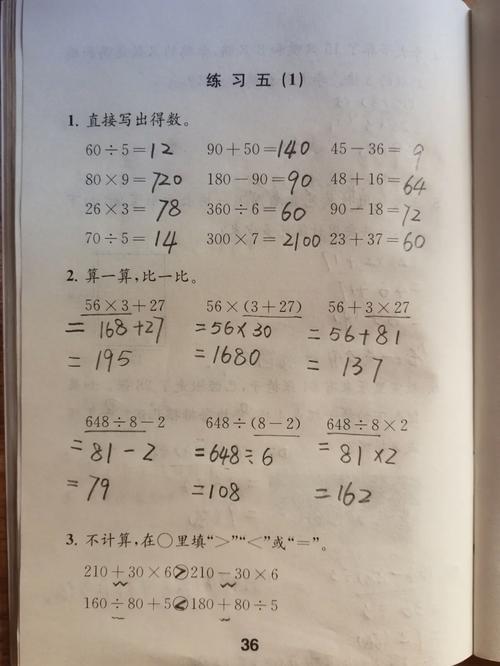 练习五(1)
1. 直接写出得数。
60÷5=12 90+50=140 45-36=9
80×9=720 180-90=90 48+16=64
26×3=78 360÷6=60 90-18=72
70÷5=14 300×7=2100 23+37=60
2. 算一算,比一比。
56×3+27 56×(3+27) 56+3×27
=168+27 =56×30 =56+81
=195 =1680 =137
648÷8-2 648÷(8-2) 648÷8×2
=81-2 =648÷6 =81×2
=79 =108 =162
3. 不计算,在○里填“>”“<”或“=”。
210+30×6>210-30×6
160÷80+5<180+80÷5
36